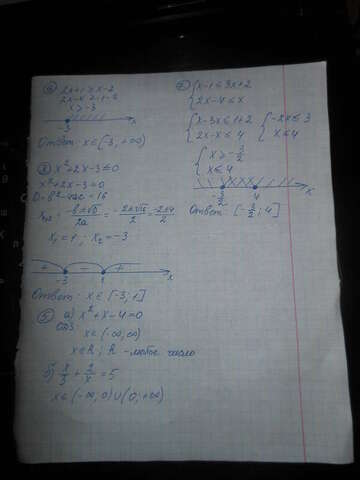 2x+1 ≥ x-2
2x-x ≥ -1-2
x ≥ -3
-3 x
Ответ: x∈[-3, +∞)
③ x²+2x-3≤0
x²+2x-3=0
D=b²-4ac=16
x₁,₂ = (-b±√D)/2a = (-2±√16)/2 = (-2±4)/2
x₁=1; x₂=-3
+ - +
-3 1 x
Ответ: x∈[-3;1]
⑤ а) x²+x-4=0
ОДЗ:
x∈(-∞,∞)
x∈R; R - любое число
б) x/3 + 2/x = 5
x∈(-∞,0)∪(0;+∞)
{x-1≤3x+2
{2x-4≤x
{x-3x≤1+2
{2x-x≤4
{-2x≤3
{x≤4
{x≥-3/2
{x≤4
-3/2 4 x
Ответ: [-3/2; 4]